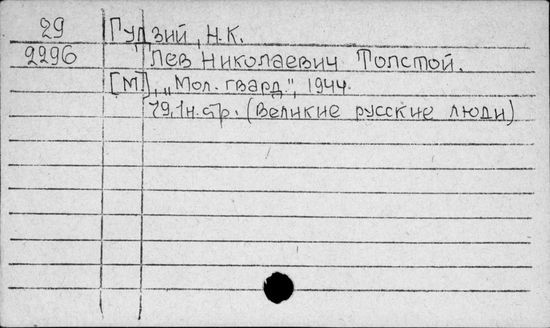 29 Гудзий, Н.К.
2296 Лев Николаевич Толстой.
[М], „Мол. гвард.", 1944.
79, 1 н. стр. (Великие русские люди)